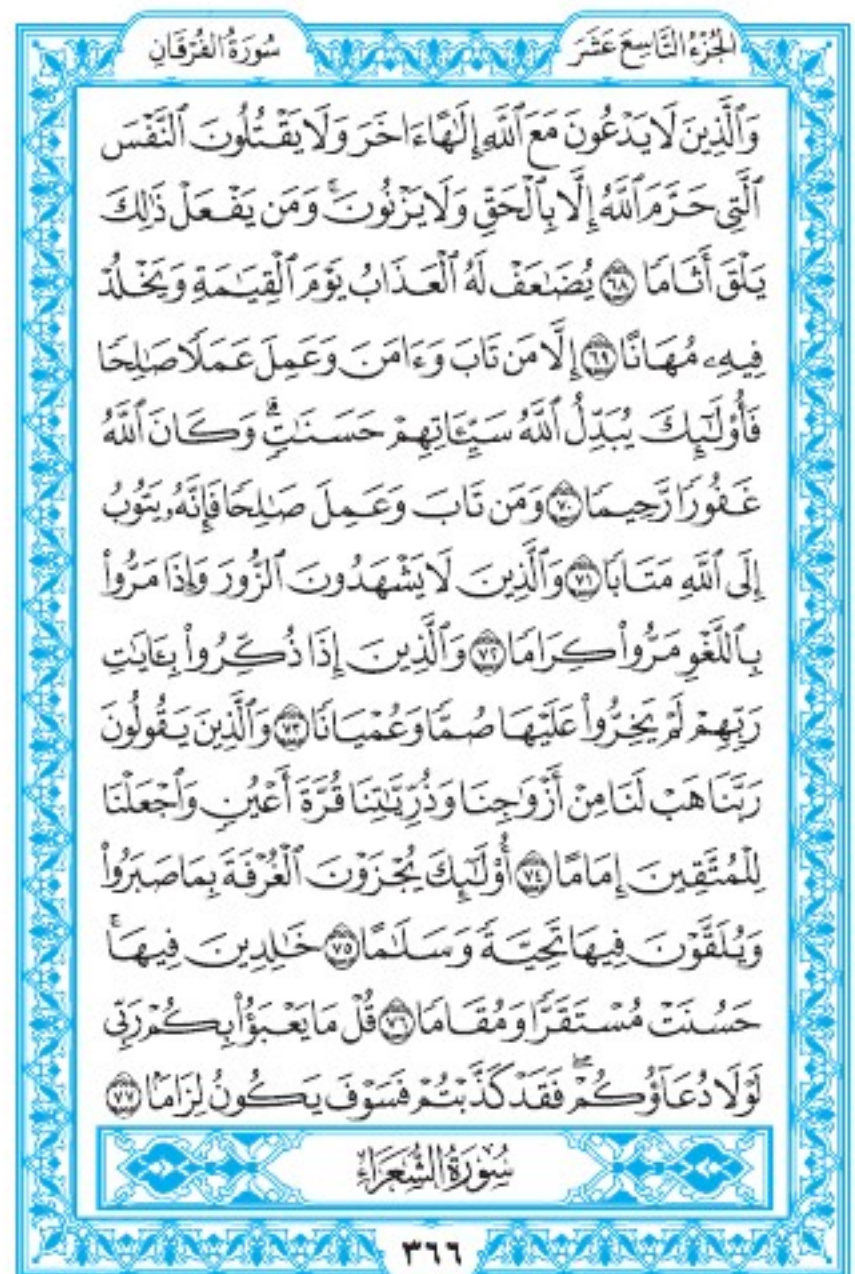 الجُزْءُ التَّاسِعَ عَشَرَ
سُورَةُ الفُرْقَانِ
وَٱلَّذِينَ لَا يَدْعُونَ مَعَ ٱللَّهِ إِلَٰهًا ءَاخَرَ وَلَا يَقْتُلُونَ ٱلنَّفْسَ
ٱلَّتِي حَرَّمَ ٱللَّهُ إِلَّا بِٱلْحَقِّ وَلَا يَزْنُونَۚ وَمَن يَفْعَلْ ذَٰلِكَ
يَلْقَ أَثَامًا ٦٨ يُضَٰعَفْ لَهُ ٱلْعَذَابُ يَوْمَ ٱلْقِيَٰمَةِ وَيَخْلُدْ
فِيهِۦ مُهَانًا ٦٩ إِلَّا مَن تَابَ وَءَامَنَ وَعَمِلَ عَمَلًا صَٰلِحًا
فَأُو۟لَٰٓئِكَ يُبَدِّلُ ٱللَّهُ سَيِّـَٔاتِهِمْ حَسَنَٰتٍۗ وَكَانَ ٱللَّهُ
غَفُورًا رَّحِيمًا ٧٠ وَمَن تَابَ وَعَمِلَ صَٰلِحًا فَإِنَّهُۥ يَتُوبُ
إِلَى ٱللَّهِ مَتَابًا ٧١ وَٱلَّذِينَ لَا يَشْهَدُونَ ٱلزُّورَ وَإِذَا مَرُّوا۟
بِٱللَّغْوِ مَرُّوا۟ كِرَامًا ٧٢ وَٱلَّذِينَ إِذَا ذُكِّرُوا۟ بِـَٔايَٰتِ
رَبِّهِمْ لَمْ يَخِرُّوا۟ عَلَيْهَا صُمًّا وَعُمْيَانًا ٧٣ وَٱلَّذِينَ يَقُولُونَ
رَبَّنَا هَبْ لَنَا مِنْ أَزْوَٰجِنَا وَذُرِّيَّٰتِنَا قُرَّةَ أَعْيُنٍ وَٱجْعَلْنَا
لِلْمُتَّقِينَ إِمَامًا ٧٤ أُو۟لَٰٓئِكَ يُجْزَوْنَ ٱلْغُرْفَةَ بِمَا صَبَرُوا۟
وَيُلَقَّوْنَ فِيهَا تَحِيَّةً وَسَلَٰمًا ٧٥ خَٰلِدِينَ فِيهَاۚ
حَسُنَتْ مُسْتَقَرًّا وَمُقَامًا ٧٦ قُلْ مَا يَعْبَؤُا۟ بِكُمْ رَبِّي
لَوْلَا دُعَآؤُكُمْۖ فَقَدْ كَذَّبْتُمْ فَسَوْفَ يَكُونُ لِزَامًا ٧٧
سُورَةُ الشُّعَرَاءِ
٣٦٦